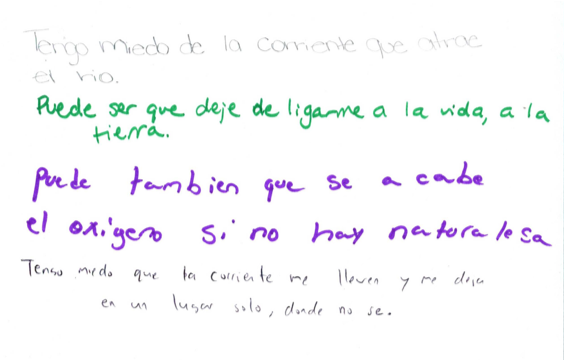 Tengo miedo de la corriente que atrae
el rio.
Puede ser que deje de ligarme a la vida, a la
tierra.
Puede tambien que se a cabe
el oxigeno si no hay naturalesa
Tengo miedo que la corriente me lleven y me deja
en un lugar solo, donde no se.